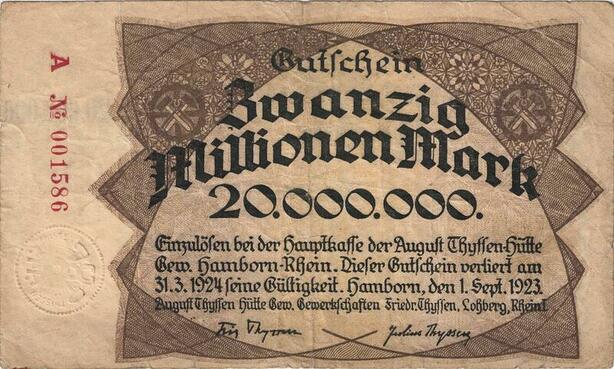 Gutschein
Zwanzig
Millionen Mark
20.000.000.
Einzulösen bei der Hauptkasse der August Thyssen-Hütte
Gew. Hamborn-Rhein. Dieser Gutschein verliert am
31.3.1924 seine Gültigkeit. Hamborn, den 1. Sept. 1923.
August Thyssen Hütte Gew. Gewerkschaften Friedr. Thyssen, Lohberg, Rhein I
Fritz Thyssen Julius Thyssen
A № 001586